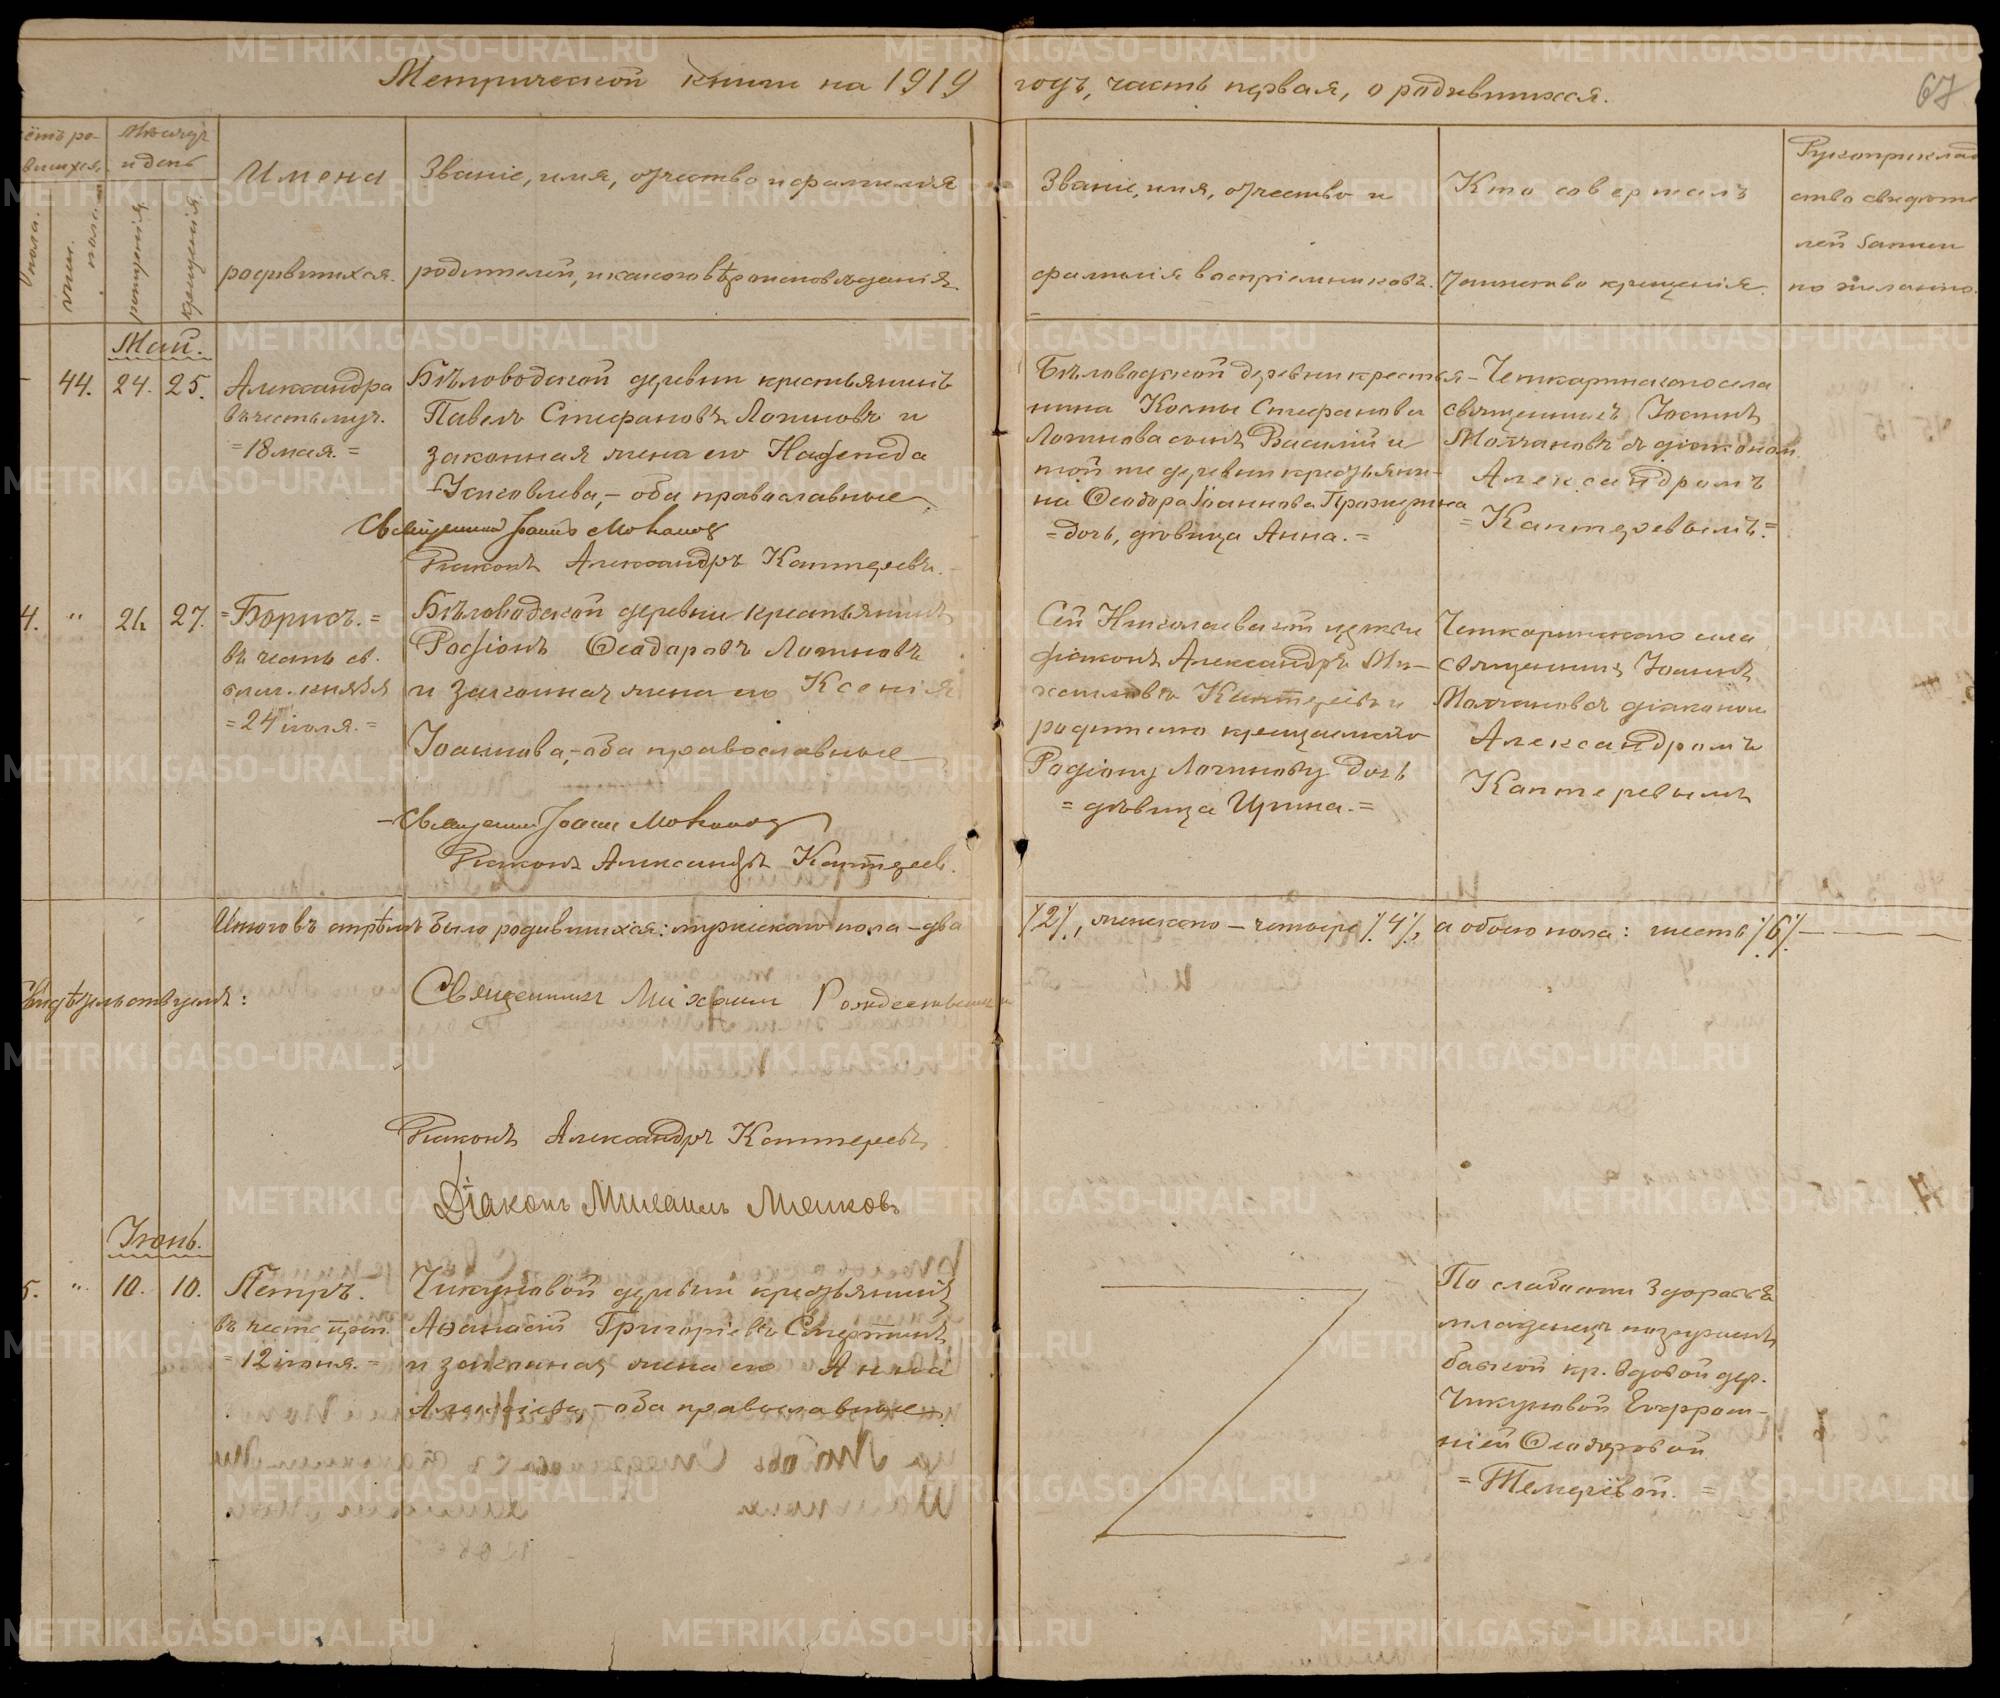 Метрической книги на 1919 годъ, часть первая, о родившихся.
67
Мѣсяцъ
и день
рожденія.
крещенія.
Имена
родившихся.
Званіе, имя, отчество и фамилія
родителей, и какого вѣроисповѣданія.
Званіе, имя, отчество и
фамилія воспріемниковъ.
Кто совершалъ
таинство крещенія.
Рукоприклад
ство свидѣте
лей записи
по желанію.
Май.
44. 24. 25.
Александра
въ честь муч.
=18 мая.=
Бѣловодской деревни крестьянинъ
Павелъ Стефановъ Логиновъ и
законная жена его Надежда
Яковлева, – оба православные
Священникъ Іоаннъ Молчановъ
Діаконъ Александръ Каптеревъ.
Бѣловодской деревни крестья-
нина Козмы Стефанова
Логинова сынъ Василій и
той же деревни крестьяни-
на Ѳеодора Іоаннова
=дочь, дѣвица Анна.=
Четкаринскаго села
священникъ Іоаннъ
Молчановъ съ діакономъ
Александромъ
=Каптеревымъ.=
4. " 26 27.
=Борисъ.=
въ честь св.
благ. князя
=24 іюля.=
Бѣловодской деревни крестьянинъ
Родіонъ Ѳеодоровъ Логиновъ
и законная жена его Ксенія
Іоаннова, – оба православные
Священникъ Іоаннъ Молчановъ
Діаконъ Александръ Каптеревъ.
Сей Николаевской церкви
діаконъ Александръ Ми-
хаиловъ Каптеревъ и
родителю крещаемаго
Родіону Логинову дочь
=дѣвица Ирина.=
Четкаринскаго села
священникъ Іоаннъ
Молчановъ съ діакономъ
Александромъ
Каптеревымъ
Итого въ апрѣлѣ было родившихся: мужескаго пола – два /2/, женскаго – четыре /4/, а обоего пола: шесть /6/
Свидѣтельствуемъ:
Священникъ Михаилъ Рождественскій
Діаконъ Александръ Каптеревъ
Діаконъ Михаилъ Мѣшковъ
Іюнь.
5. " 10. 10.
Петръ.
въ честь преп.
=12 іюня.=
Чикуновой деревни крестьянинъ
Аѳанасій Григоріевъ Смертинъ
и законная жена его Анна
Алексіева, – оба православные
По слабости здоровья
младенецъ погруженъ
бабкой кр. вдовой дер.
Чикуновой Евфрост-
ніей Ѳеодоровой
=Темеревой.=